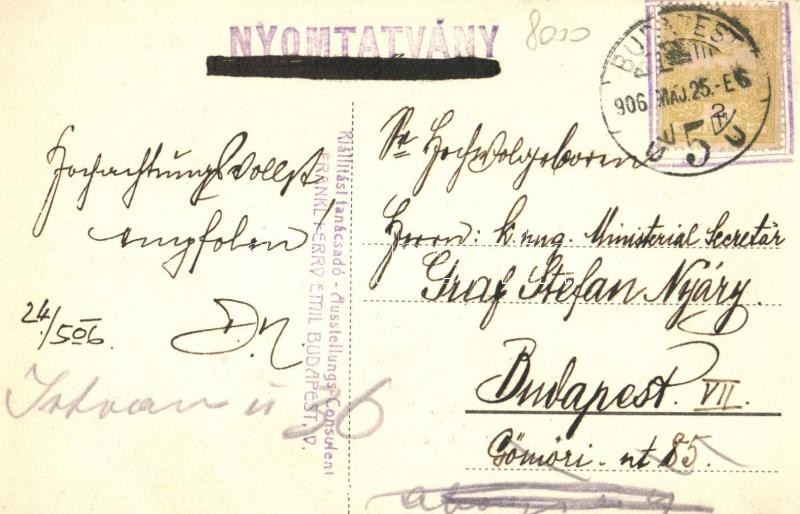 NYOMTATVÁNY
8010
BUDAPEST
906 MÁJ. 25.-E6
5
Hochachtungsvollst
empfolen!
24/5 06.
István u 56
Kiállítási tanácsadó - Ausstellungs-Consulent
FRANKL HERRY EMIL BUDAPEST, V.
Sr Hochwolgeboren
Herrn: k. ung. Ministerial Secretär
Graf Stefan Nyáry.
Budapest. VII.
Gömöri-ut 85.